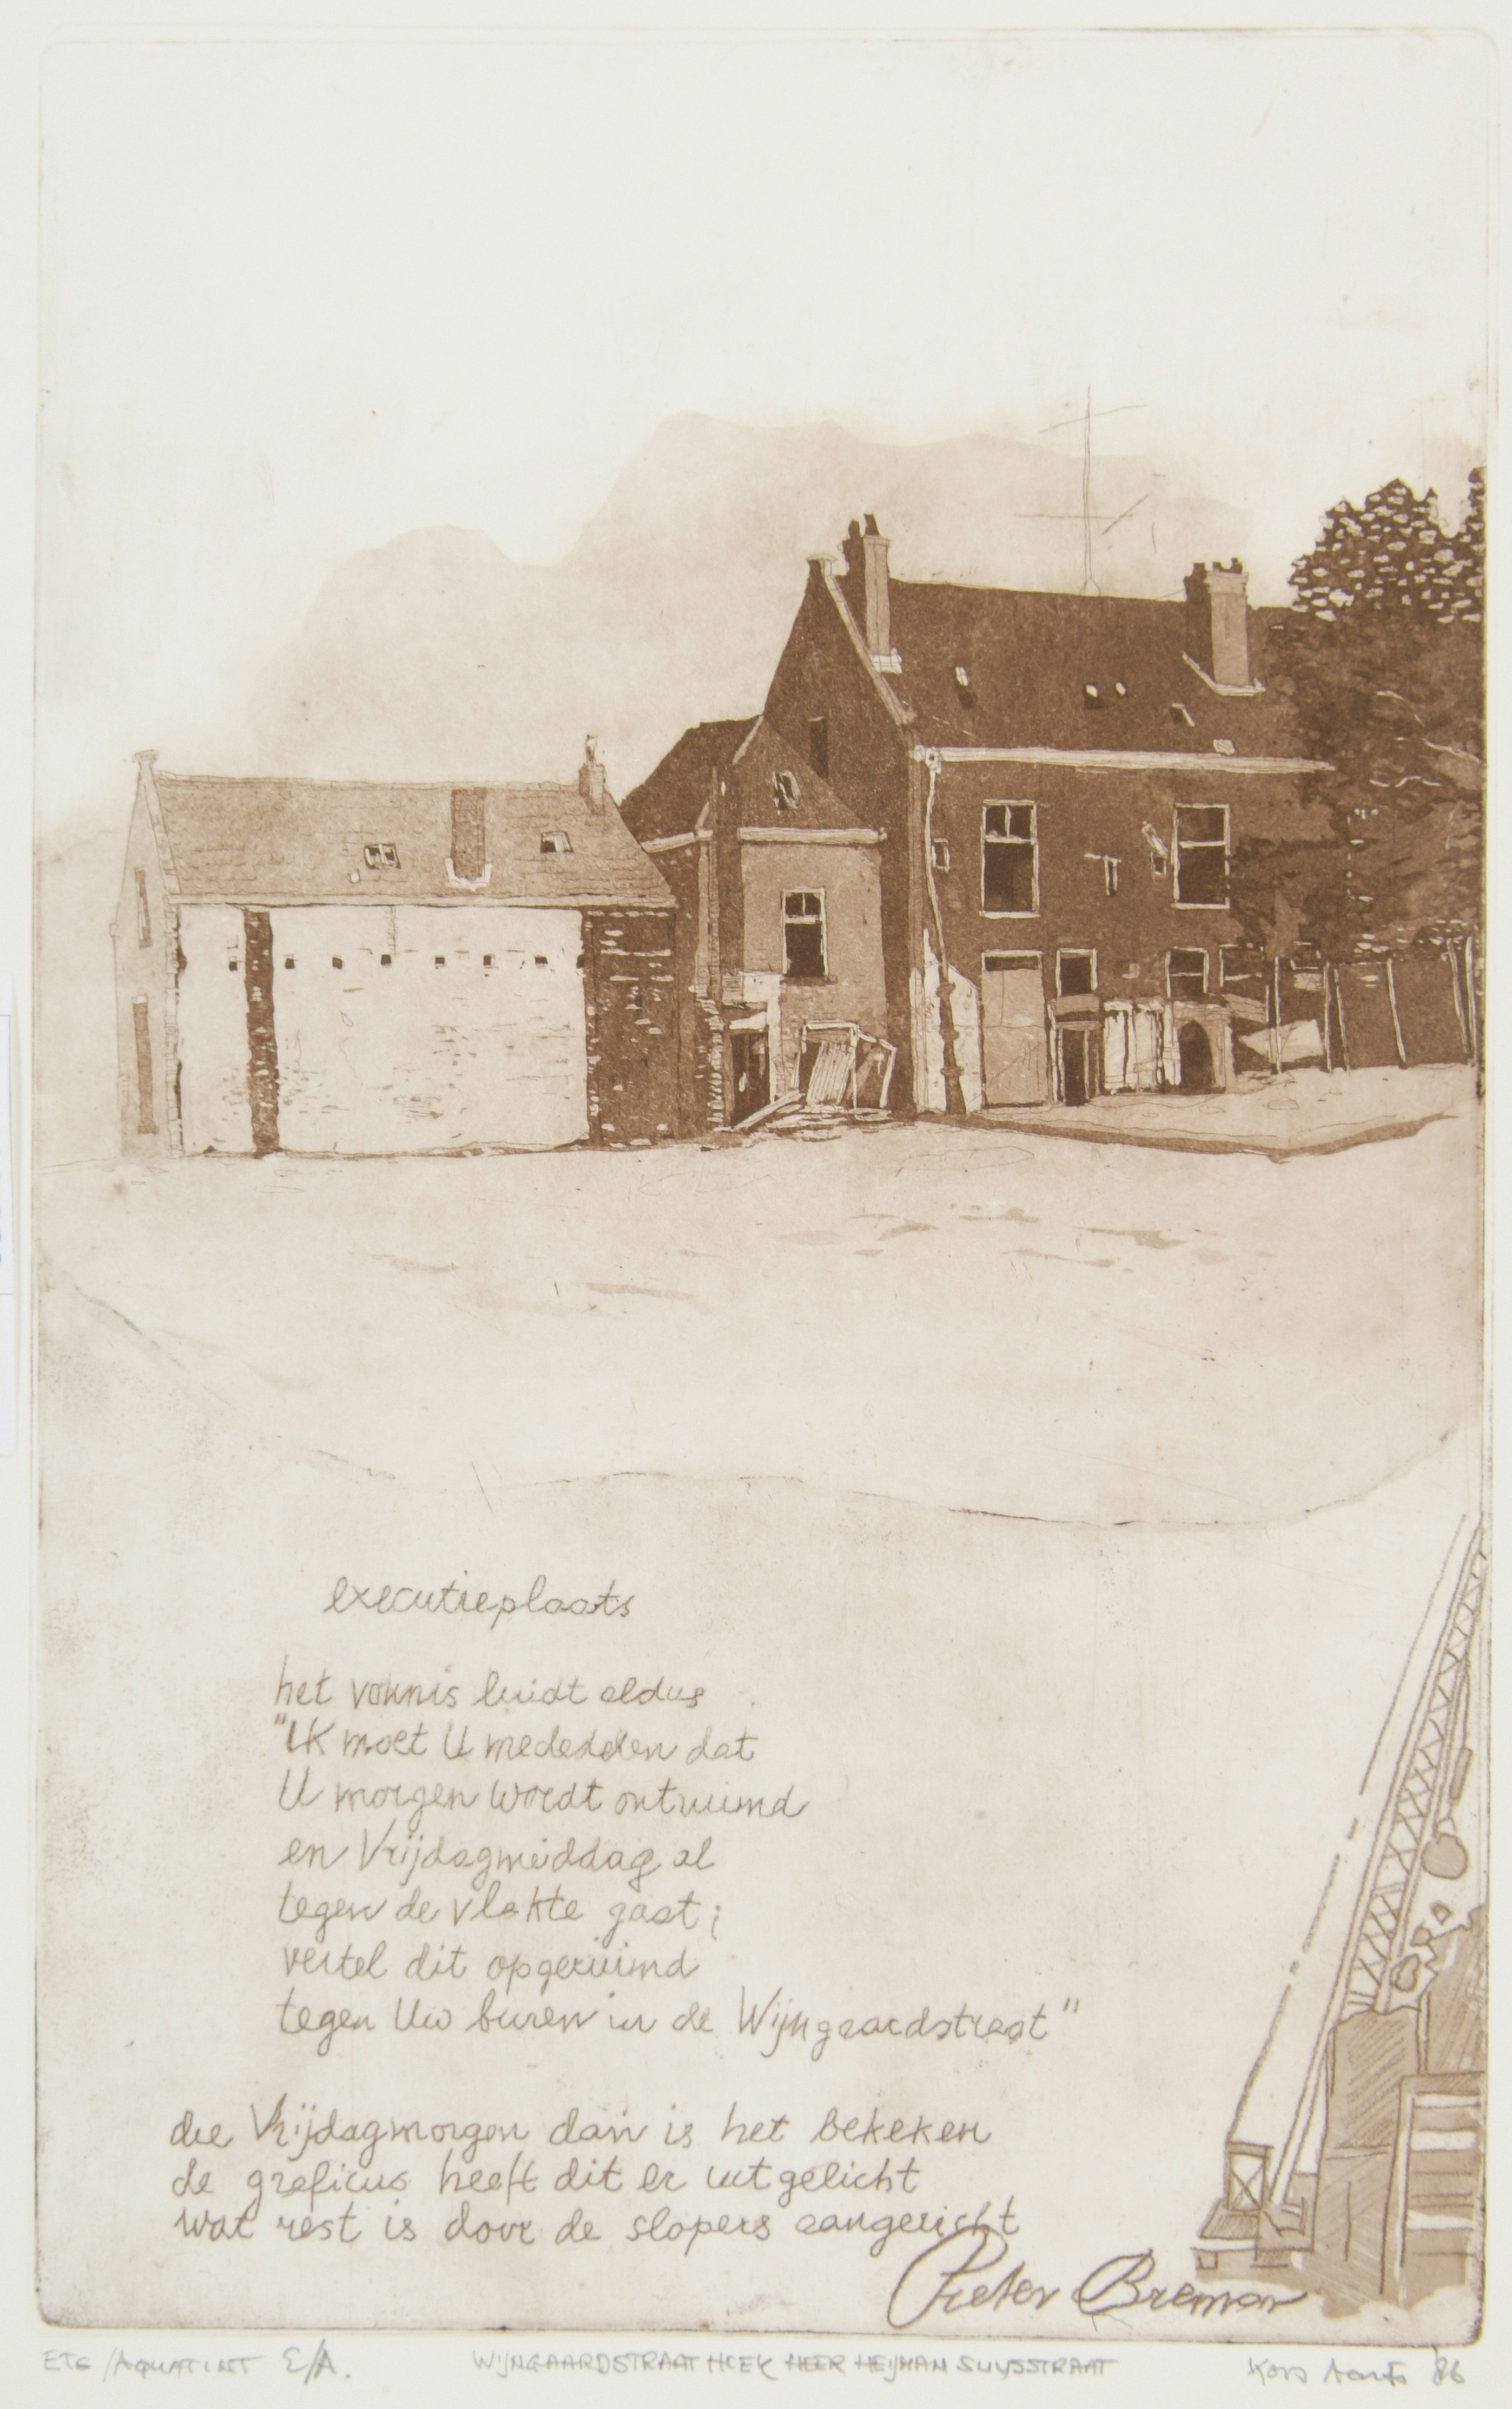 executieplaats
het vonnis luidt aldus
"IK moet U mededelen dat
U morgen wordt ontruimd
en Vrijdagmiddag al
tegen de vlakte gaat;
vertel dit opgeruimd
tegen Uw buren in de Wijngaardstraat"
die Vrijdagmorgen dan is het bekeken
de graficus heeft dit er uitgelicht
wat rest is door de slopers aangericht
Pieter Breman
ETS/AQUATINT E/A. WIJNGAARDSTRAAT HOEK HEER HEIJMAN SUIJSSTRAAT Kors '86